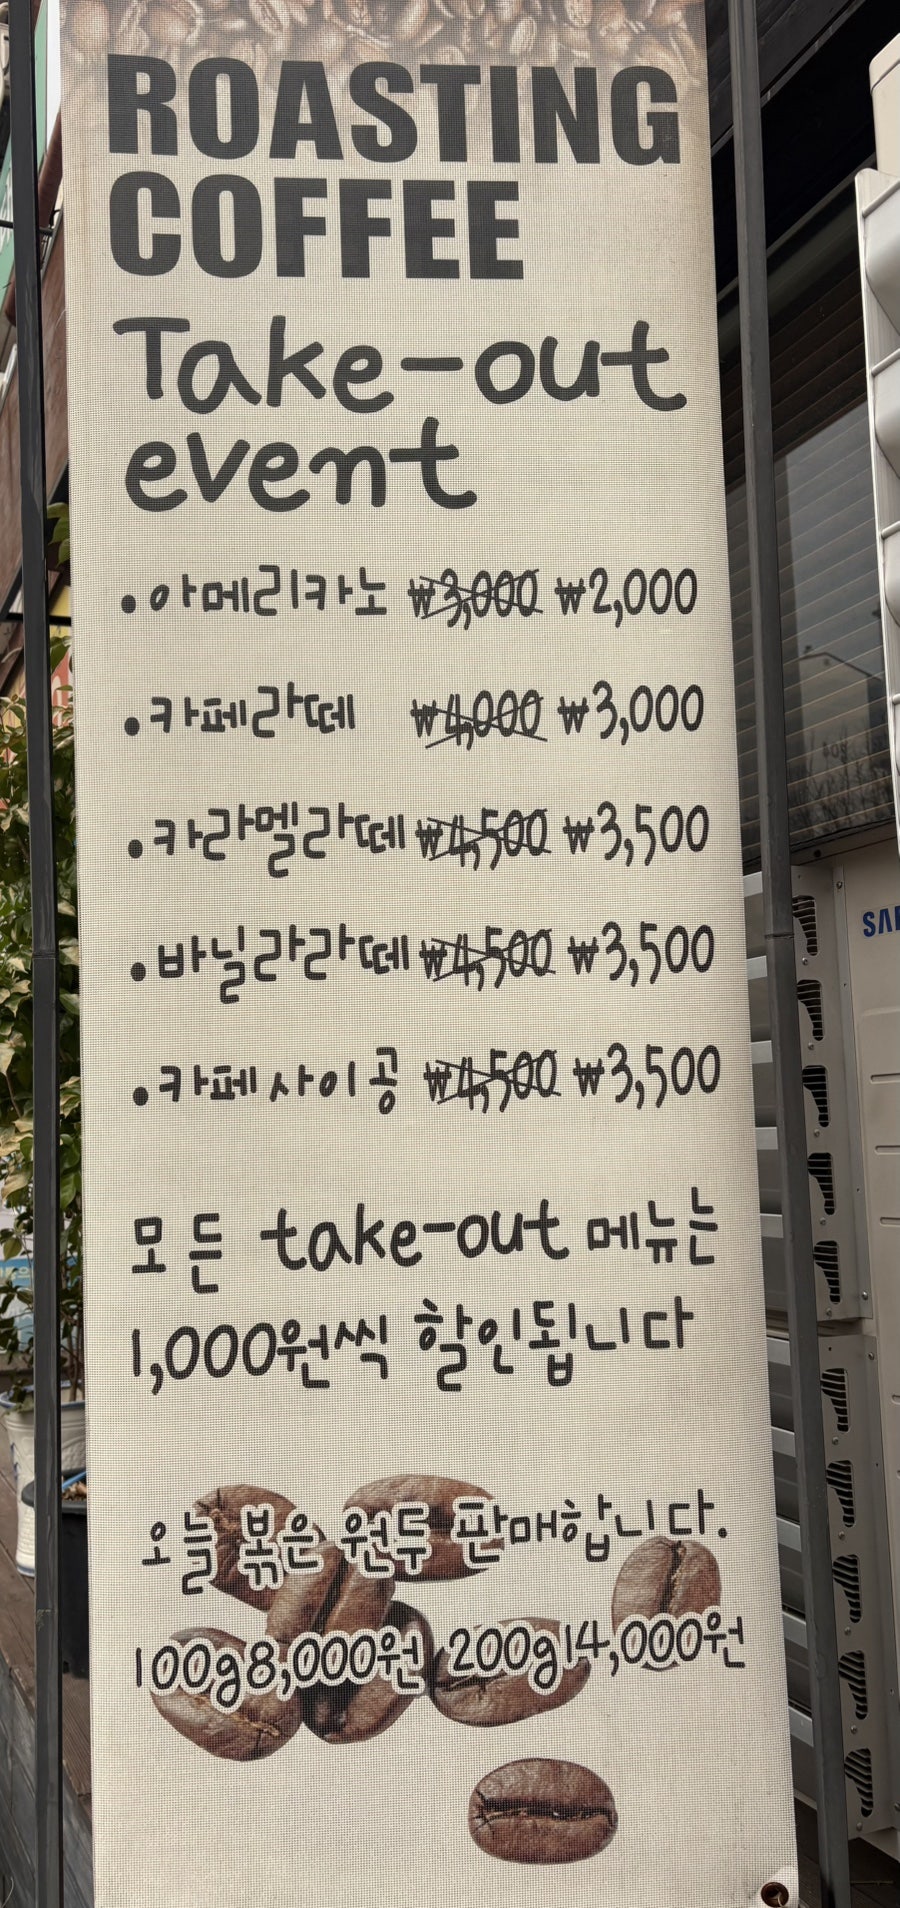 ROASTING
COFFEE
Take-out
event
•아메리카노 ₩3,000 ₩2,000
•카페라떼 ₩4,000 ₩3,000
•카라멜라떼 ₩4,500 ₩3,500
•바닐라라떼 ₩4,500 ₩3,500
•카페사이공 ₩4,500 ₩3,500
모든 take-out 메뉴는
1,000원씩 할인됩니다
오늘 볶은 원두 판매합니다.
100g8,000원 200g14,000원